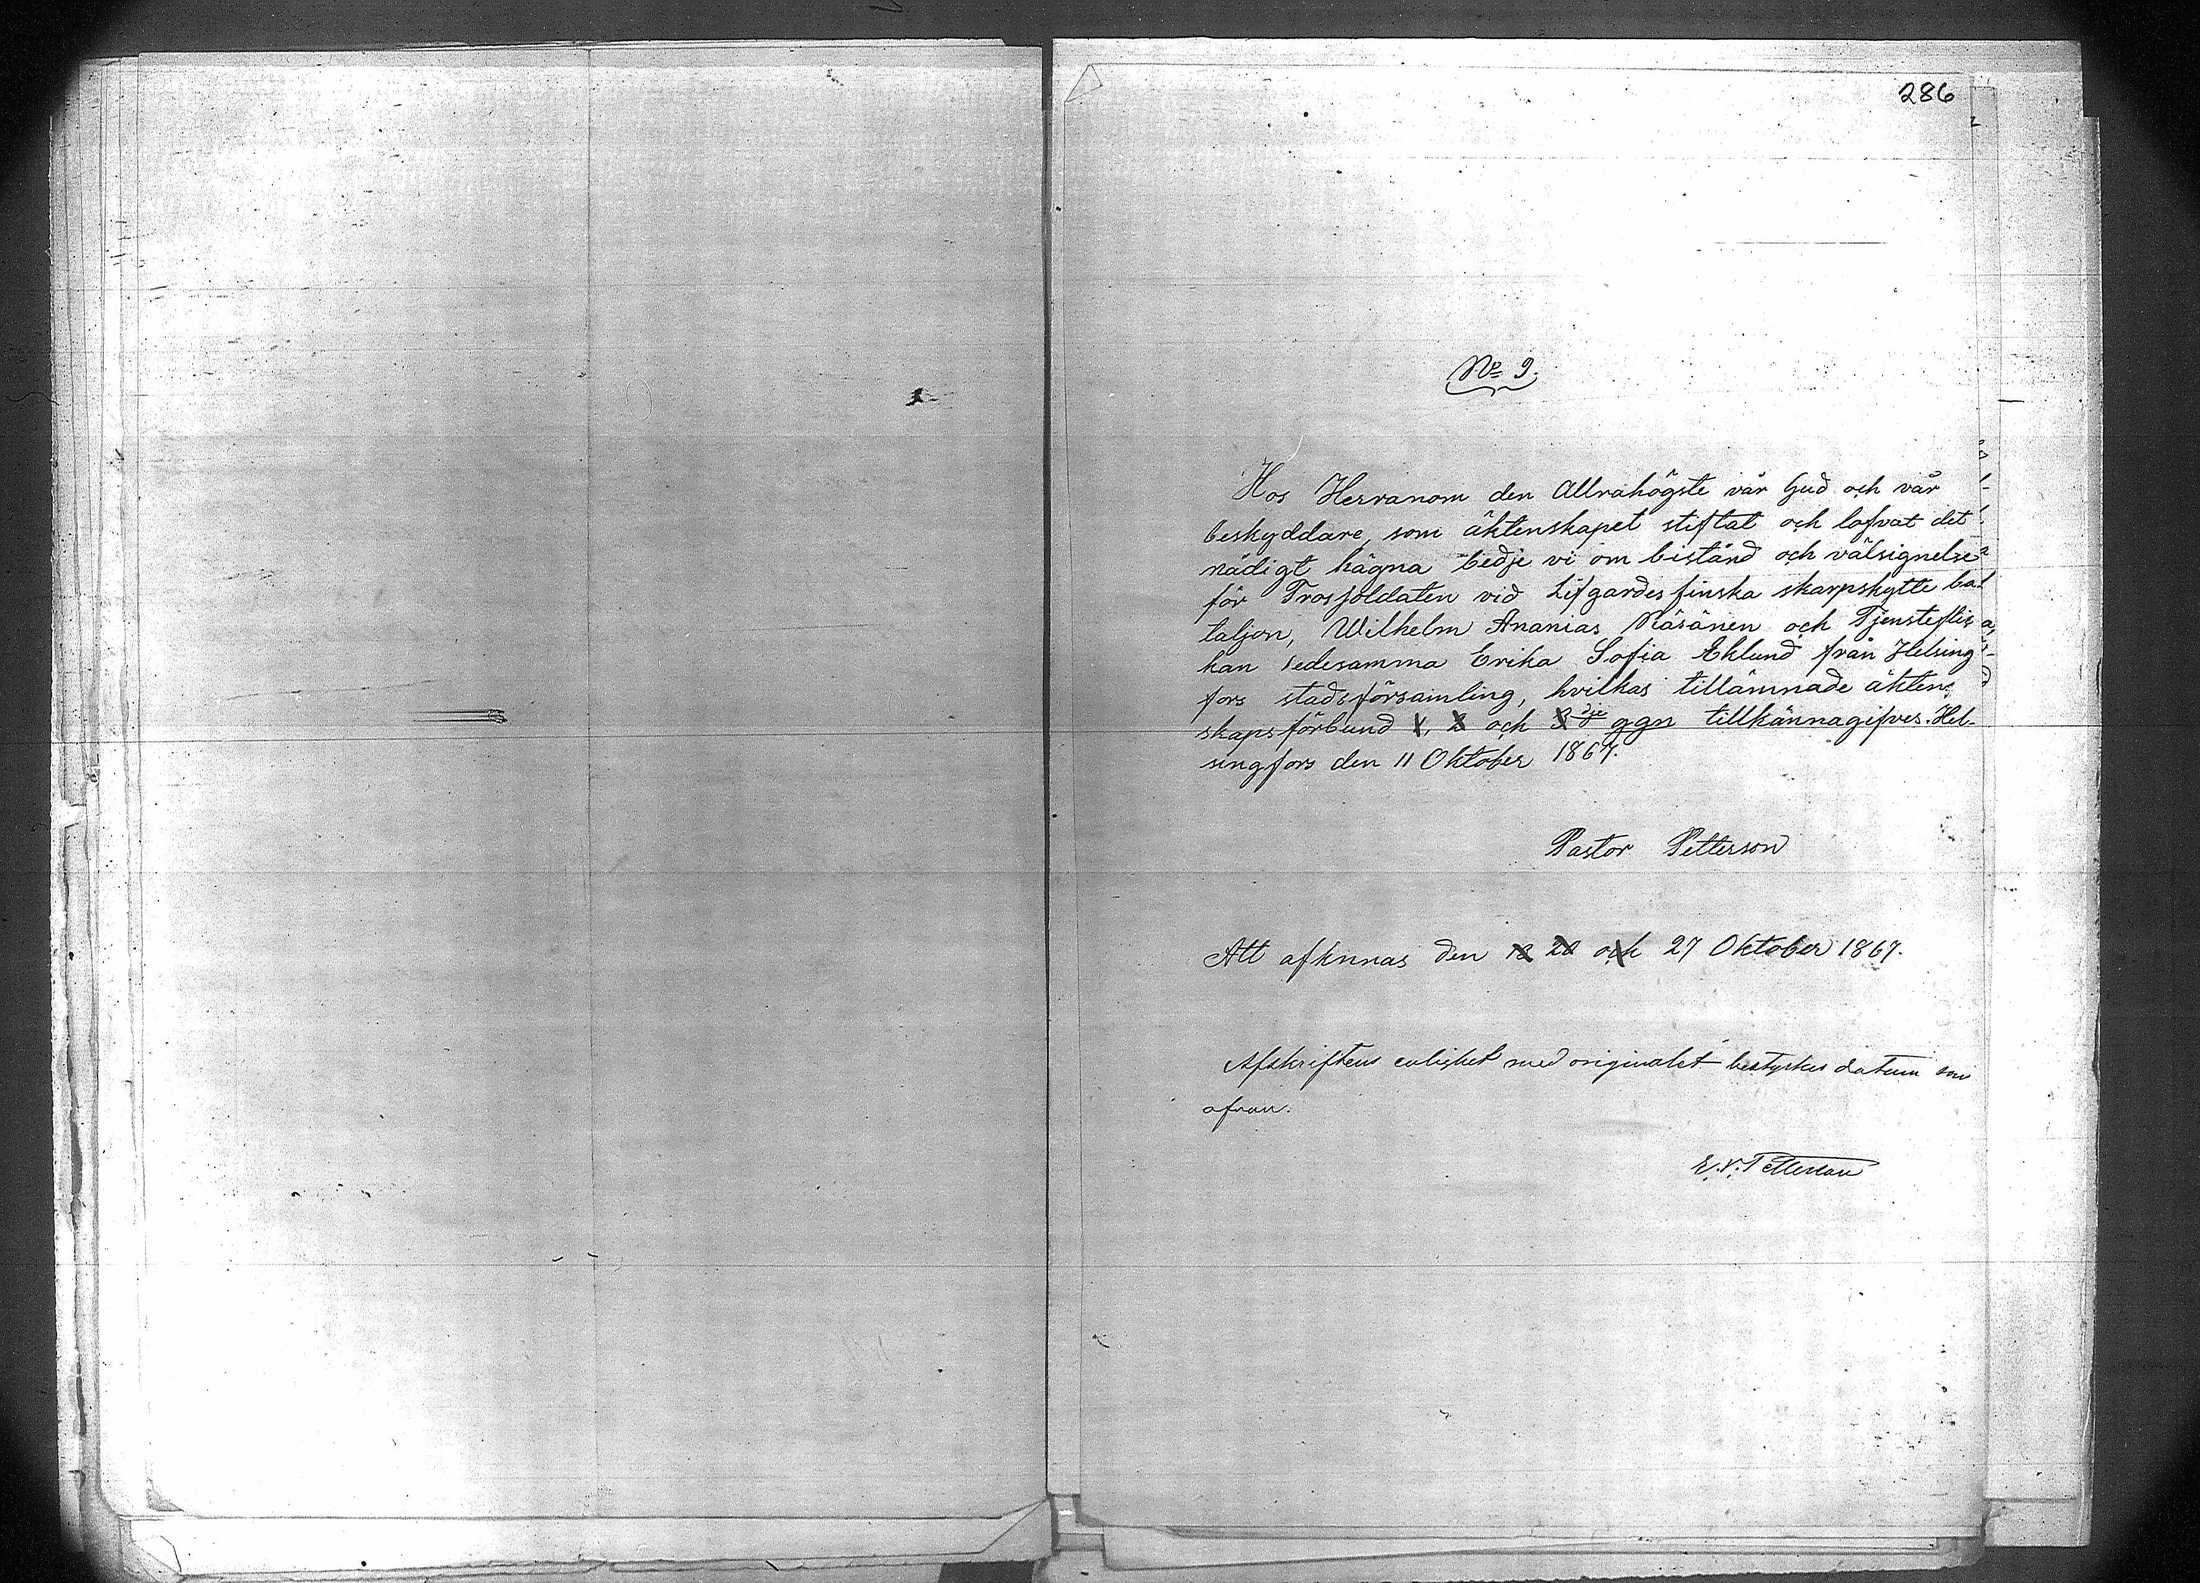 286
No 9.
Hos Herranom den Allrahögste vår Gud och vår
beskyddare, som äktenskapet stiftat och lofvat det
nådigt hägna bedje vi om bistånd och välsignelse
för Trossoldaten vid Lifgardes finska skarpskytte ba-
taljon, Wilhelm Ananias Räsänen och Tjensteflic
kan sedesamma Erika Sofia Eklund från Helsing
fors stadsförsamling, hvilkas tillämnade äkten-
skapsförbund 1, 2 och 3dje ggn tillkännagifves. Hel-
singfors den 11 Oktober 1867.
Pastor Petterson
Att afkunnas den 13 20 och 27 Oktober 1867.
Afskriftens enlighet med originalet bestyrkes datum som
ofvan.
Petterson